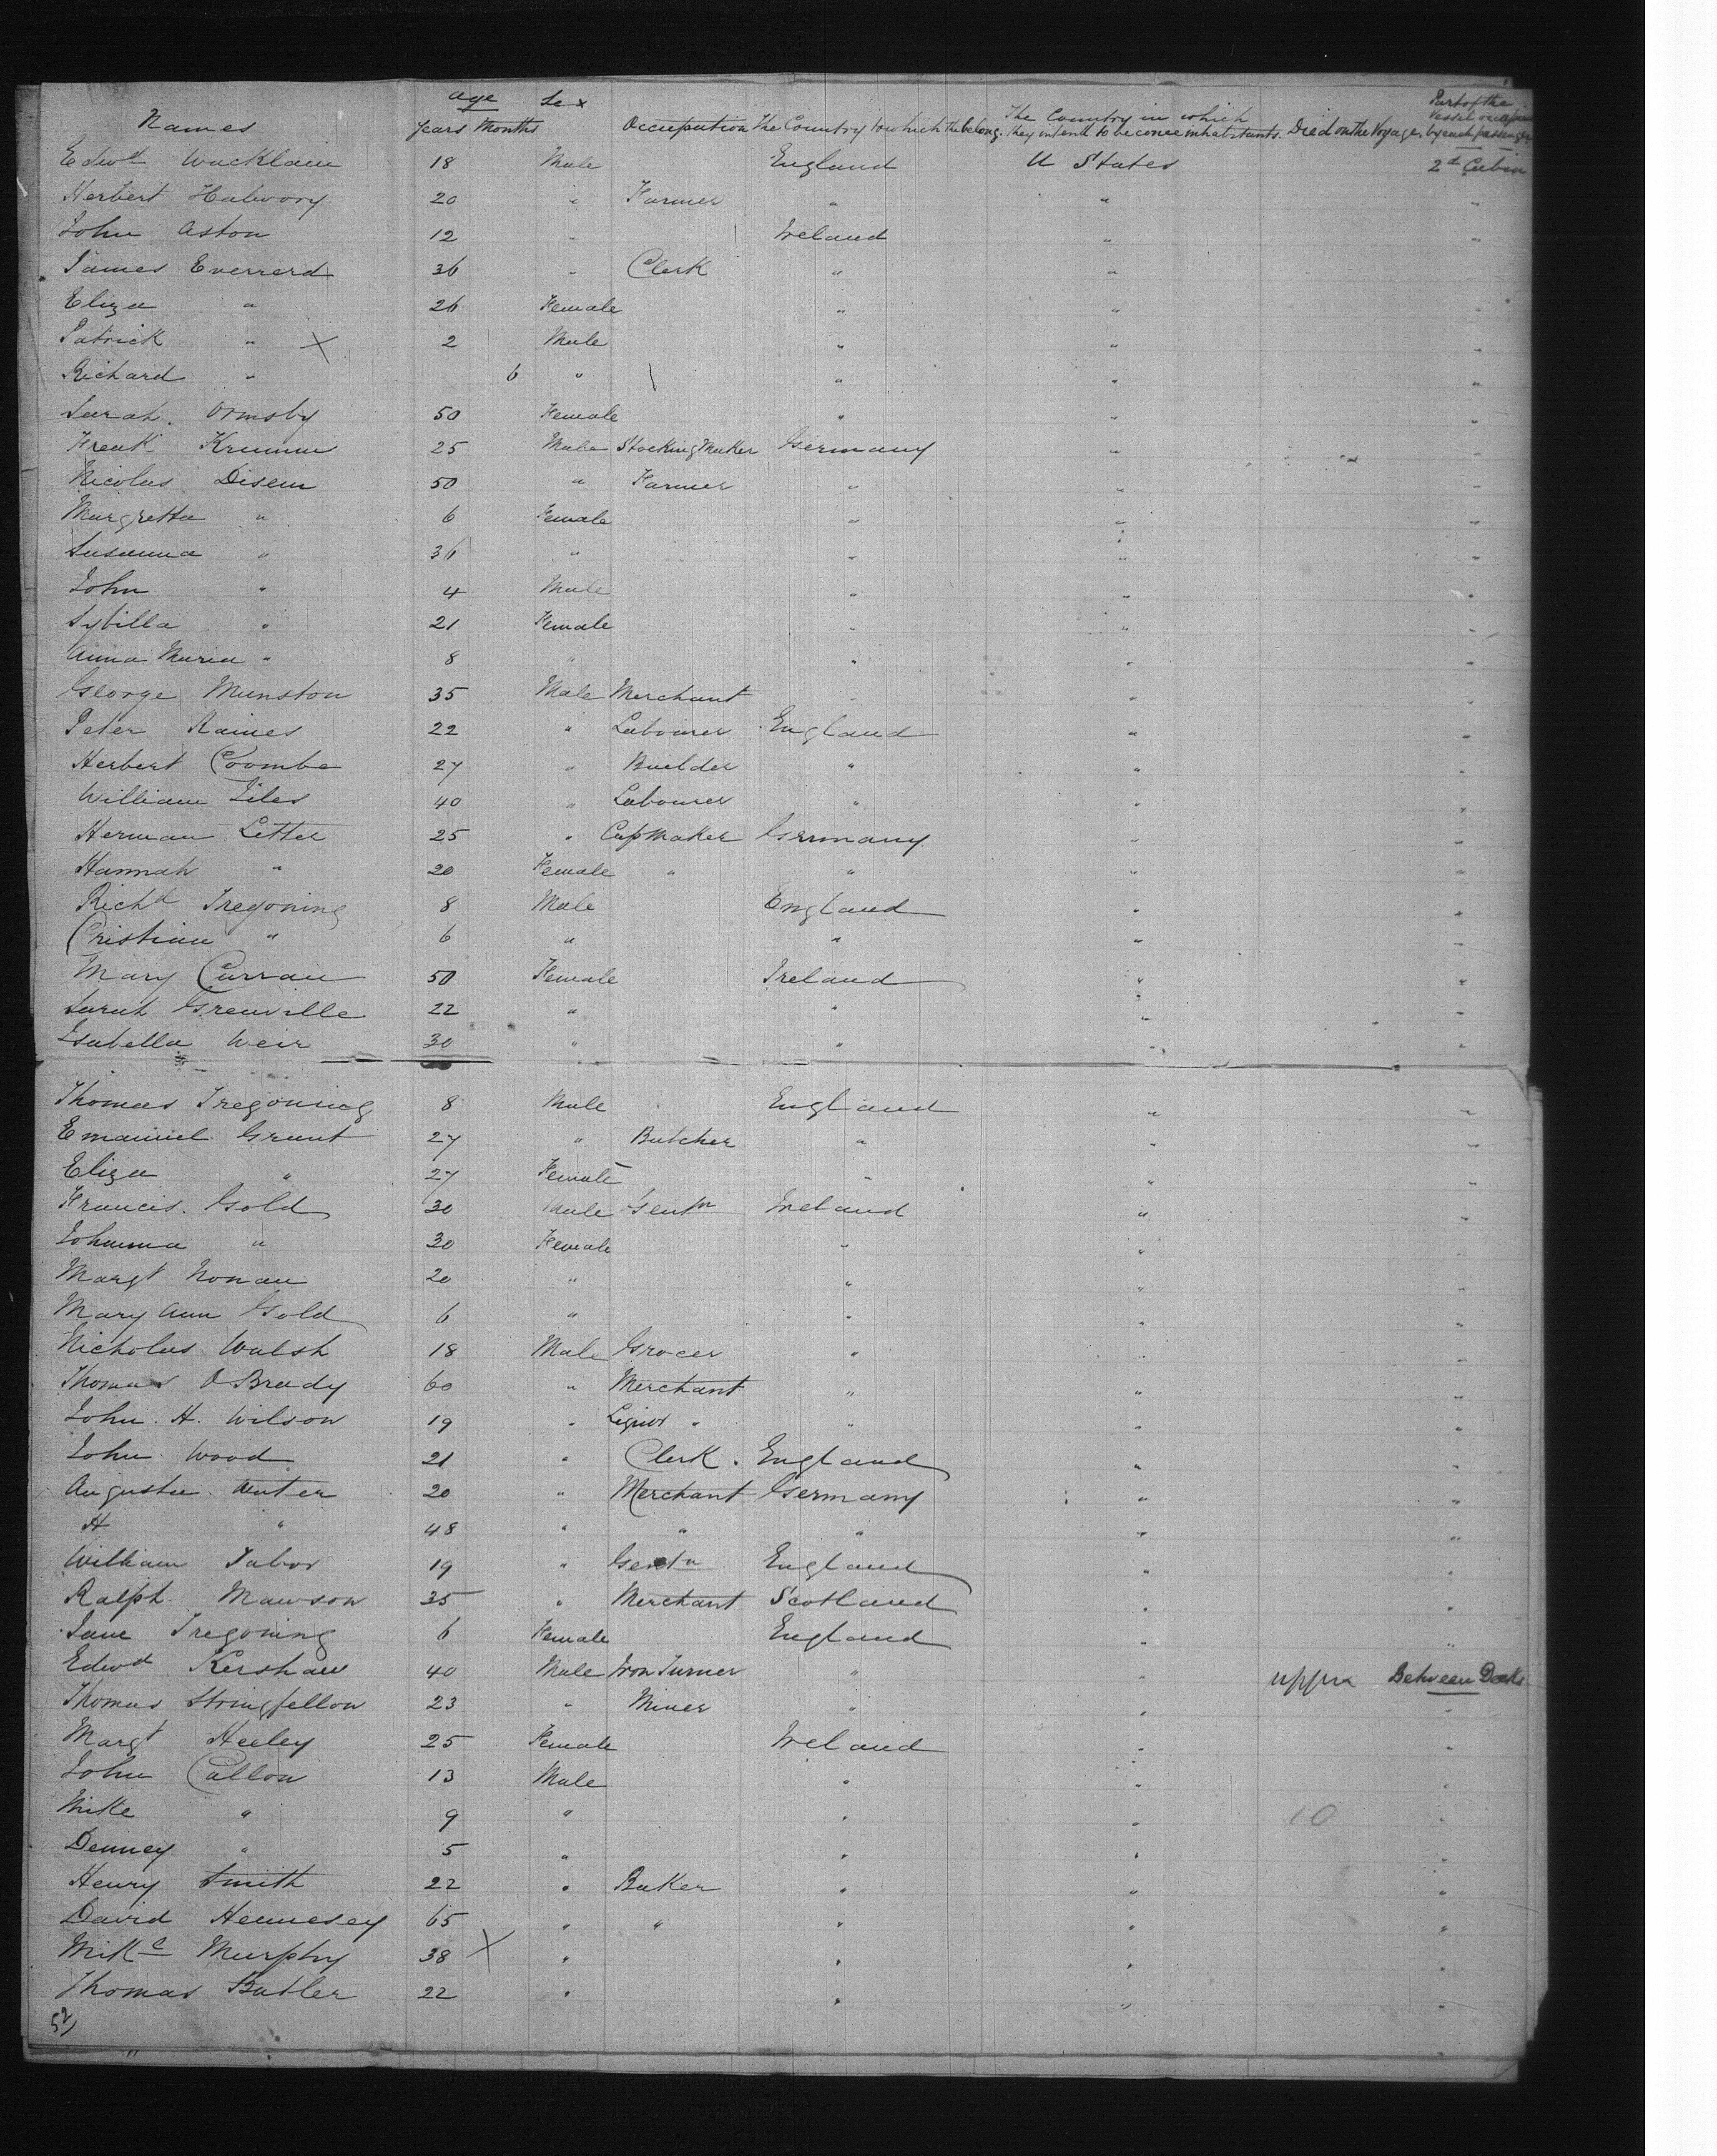 Names age Years Months Sex Occupation The Country to which the belong. The Country in which they intend to become inhabitants. Died on the Voyage. Part of the Vessel occupied by each passenger
Edwd Wacklain 18 Male England U States 2d Cabin
Herbert 20 " Farmer " " "
John Aston 12 " Ireland " "
James Everrerd 36 " Clerk " " "
Eliza " 26 Female " " "
Patrick " X 2 Male " " "
Richard " 6 " \ " " "
Sarah. Ormsby 50 Female " " "
Frank Krumm 25 Male Stocking Maker Germany " "
Nicolas Disem 50 " Farmer " " "
Margretta " 6 Female " " "
Susanna " 36 " " " "
John " 4 Male " " "
Sybilla " 21 Female " " "
Anna Maria " 8 " " " "
George Munston 35 Male Merchant " " "
Peter Raines 22 " Labourer England " "
Herbert Coombe 27 " Builder " " "
William Liles 40 " Labourer " " "
Herman Letter 25 " Cap Maker Germany " "
Hannah " 20 Female " " " "
Richd Tregoning 8 Male England " "
Cristian " 6 " " " "
Mary Curran 50 Female Ireland " "
Sarah Grenville 22 " " " "
Isabella Weir 30 " " " "
Thomas Tregoning 8 Male England " "
Emanuel Grant 27 " Butcher " " "
Eliza " 27 Female " " "
Francis. Gold 30 Male Gentn Ireland " "
Johanna " 30 Female " " "
Margt Nonan 20 " " " "
Mary Ann Gold 6 " " " "
Nicholas Walsh 18 Male Grocer " " "
Thomas O Brady 60 " Merchant " " "
John. H. Wilson 19 " Liquor " " " "
John Wood 21 " Clerk. England " "
Augusta Auter 20 " Merchant Germany " "
H " 48 " " " " "
William Tabor 19 " Gentn England " "
Ralph Mawson 35 " Merchant Scotland " "
Jane Tregoning 6 Female England " "
Edwd Kershaw 40 Male Iron Turner " " upper Between Decks
Thomas Stringfellow 23 " Miner " " "
Margt Heeley 25 Female Ireland " "
John Callon 13 Male " " "
Mike " 9 " " " 10 "
Denney " 5 " " " "
Henry Smith 22 " Baker " " "
David Hennesey 65 " " " " "
Mike Murphy 38 X " " " "
Thomas Butler 22 " " " "
52
"